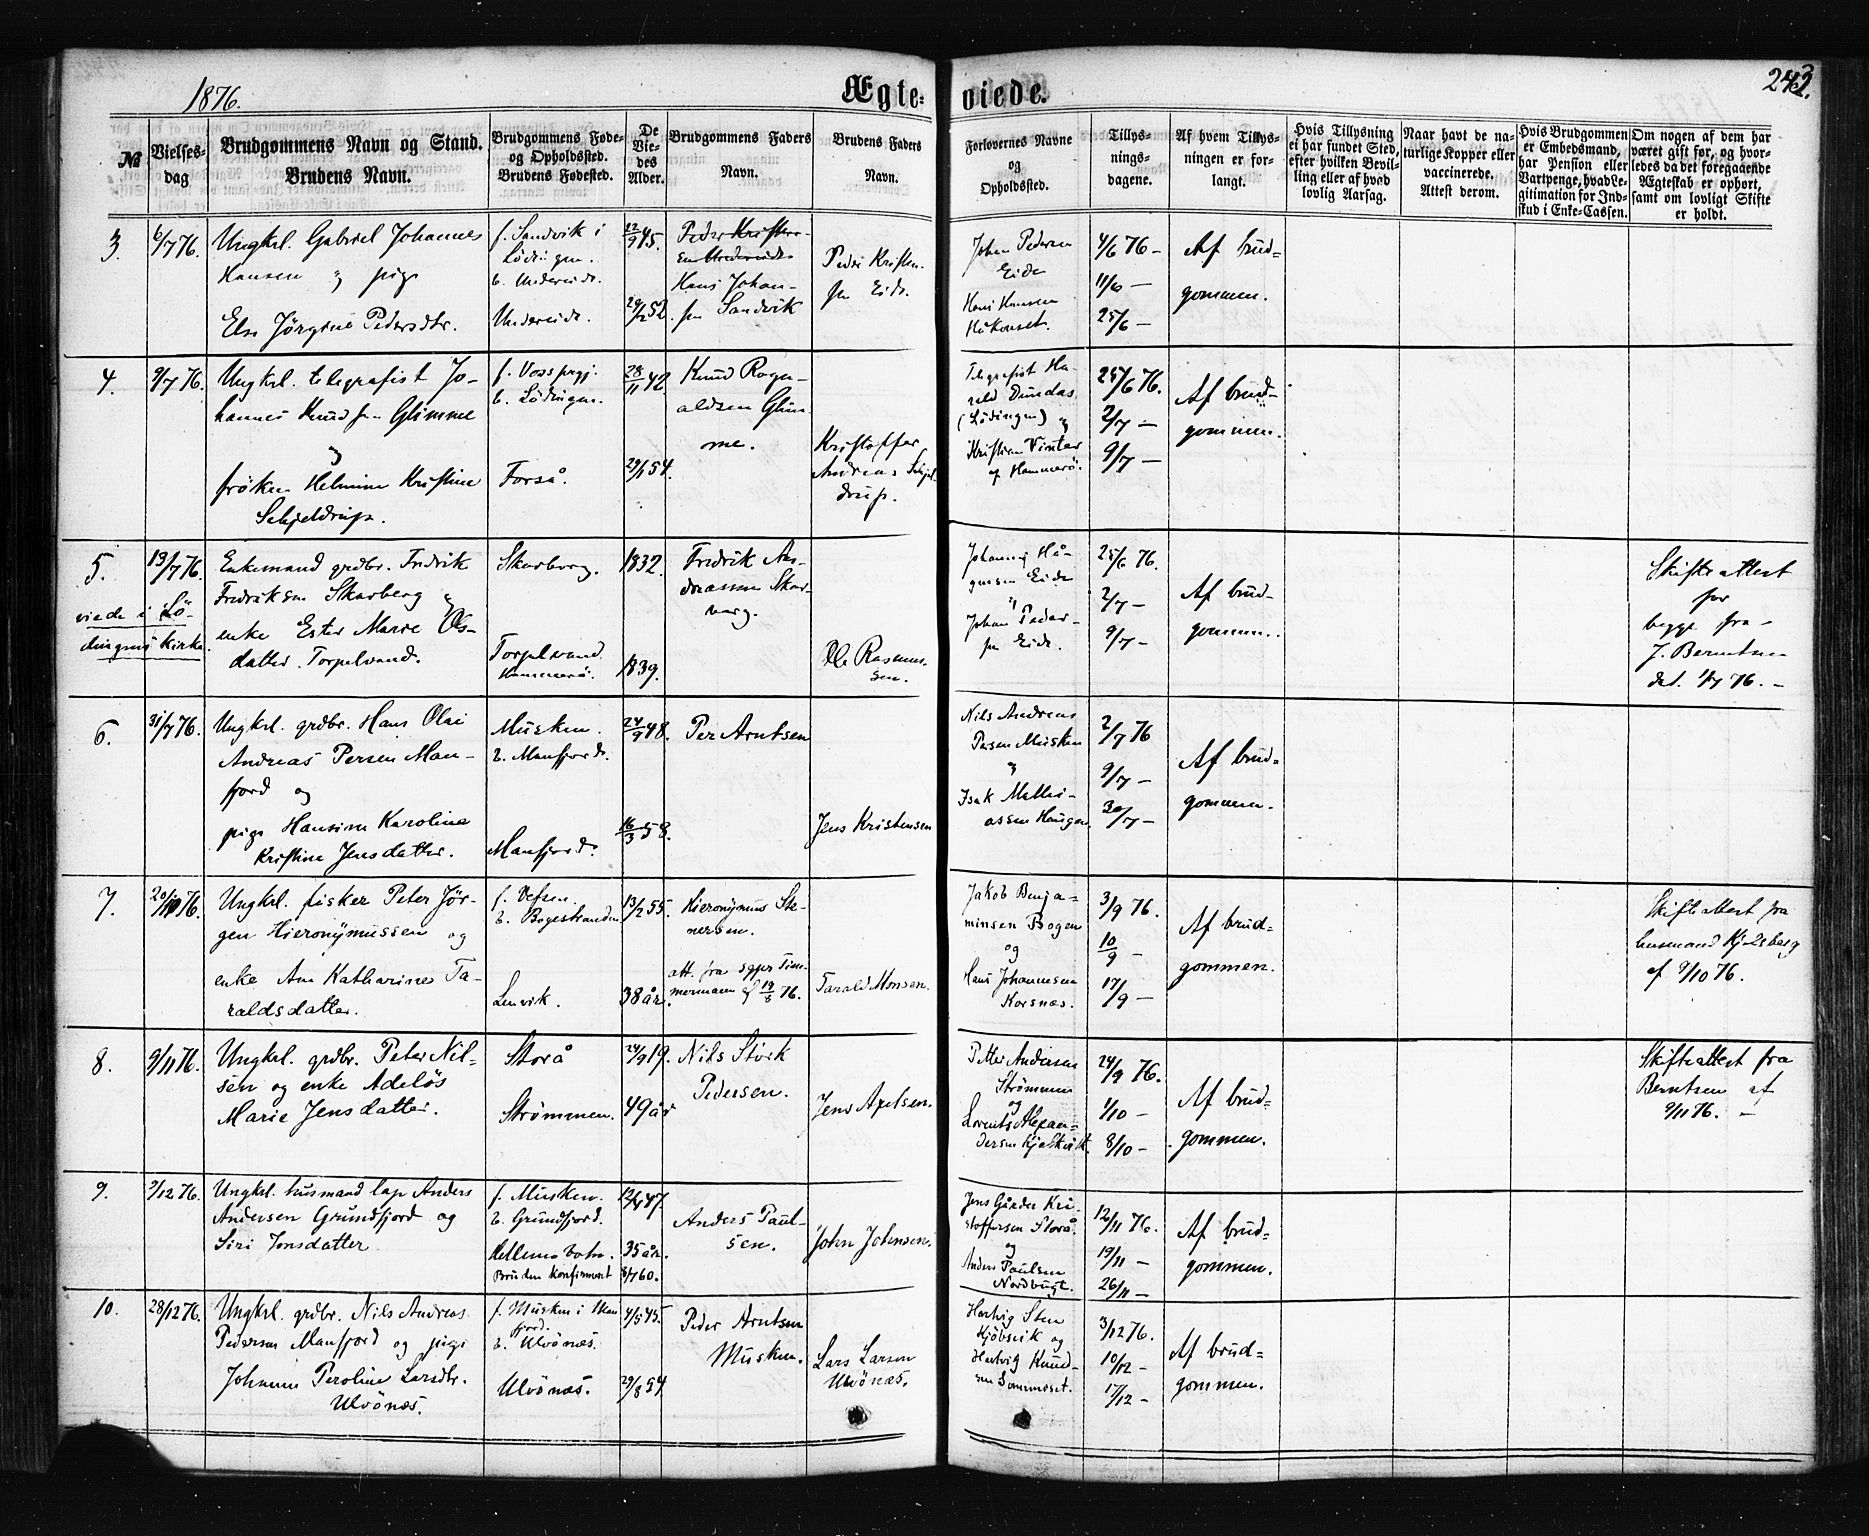 1876.
Ægte-
viede.
243.
№
Vielses-
dag
Brudgommens Navn og Stand.
Brudens Navn.
Brudgommens Føde-
og Opholdssted.
Brudens Fødested.
De
Vie-
des
Alder.
Brudgommens Faders
Navn.
Brudens Faders
Navn.
Forlovernes Navne
og
Opholdssted.
Tillys-
nings-
dagene.
Af hvem Tillys-
ningen er for-
langt.
Hvis Tillysning
ei har fundet Sted,
efter hvilken Bevil-
ling eller af hvad
lovlig Aarsag.
Naar havt de na-
turlige Kopper eller
vaccinerede.
Attest derom.
Hvis Brudgommen
er Embedsmand,
har Pension eller
Vartpenge, hvad Le-
gitimation for Ind-
skud i Enke-Cassen.
Om nogen af dem har
været gift før, og hvor-
ledes da det foregaaende
Ægteskab er ophørt,
samt om lovligt Skifte
er holdt.
3.
6/7 76.
Ungkrl. Gabriel Johannes
Hansen og pige
Else Jørgine Pedersdtr.
f. Sandvik i
Lødingen.
b. Undereide.
Undereide.
22/9 45.
29/2 52.
Peder Kristen-
sen Undereide
Hans Johan-
sen Sandvik
Peder Kristen-
sen Eide.
Johan Pedersen
Eide
Hans Hansen
Håkonset.
4/6 76 -
11/6 -
25/6 -
Af brud-
gommen.
4.
9/7 76.
Ungkrl. telegrafist Jo-
hannes Knudsen Glimme
og
frøken Helmine Kristine
Schjeldrup.
f. Voss prgj.
b. Lødingen.
Forså.
28/11 42
29/1 54.
Knud Rogn-
aldsen Glim-
me.
Kristoffer
Andreas Schjel-
drup.
Telegrafist Ha-
rald Dundas
(Lødingen) og
Kristian Vinter
af Hammerø.
25/6 76.
2/7 -
9/7 -
Af brud-
gommen.
5.
viede i Lø-
dingens kirke.
19/7 76.
Enkemand grdbr. Fredrik
Fredriksen Skarberg og
enke Ester Marie Ols-
datter Torpelvand.
Skarberg.
Torpelvand
Hammerø.
1832.
1839.
Fredrik An-
dreassen Skar-
berg.
Ole Rasmus-
sen.
Johannes Hå-
gensen Eide
og
Johan Peder-
sen Eide.
25/6 76.
2/7 -
9/7 -
Af brud-
gommen.
Skifteattest
for
begge fra
J. Berntsen
dat. 1/7 76. -
6.
31/7 76.
Ungkrl. grdbr. Hans Olai
Andreas Persen Man-
fjord og
pige Hansine Karoline
Kristine Jensdatter.
Musken.
b. Manfjord.
Manfjord.
24/9 48.
16/3 58.
Per Arntsen
Jens Kristensen
Nils Andreas
Persen Musken
og
Isak Mathi-
assen Haugen.
2/7 76
9/7 -
30/7 -
Af brud-
gommen.
7.
20/10 76.
Ungkrl. fisker Peter Jør-
gen Hieronymussen og
enke Ane Katharine Ta-
raldsdatter.
f. Vefsen.
b. Bogestranden
Lenvik.
13/2 55.
38 år.
Hieronymus Ste-
nersen.
att. fra sgpr Tim-
mermann af 19/8 76.
Tarald Monsen.
Jakob Benja-
minsen Bogen
og
Hans Johannesen
Korsnæs.
3/9 76.
10/9 -
17/9 -
Af brud-
gommen.
Skifteattest fra
husmand Kjelsberg
af 9/10 76.
8.
9/11 76.
Ungkrl. grdbr. Peter Nil-
sen og enke Adeløs
Marie Jensdatter.
Storå
Strømmen.
24/9 19.
49 år
Nils Stork
Pedersen.
Jens Axelsen.
Petter Andersen
Strømmen
og
Lorents Alexan-
dersen Kjeskvik.
24/9 76.
1/10 -
8/10 -
Af brud-
gommen.
Skifteattest fra
Berntsen af
9/11 76. -
9.
9/12 76.
Ungkrl. husmand lap Anders
Andersen Grundfjord og
Siri Jonsdatter
f. Musken.
b. Grundfjord.
Hellemobotn.
Bruden konfirmeret
12/4 47.
35 år.
8/7 60.
Anders Paul-
sen.
John Johnsen.
Jens Gårder Kri-
stoffersen Storå
og
Anders Paulsen
Nordbugt.
12/11 76.
19/11 -
26/11 -
Af brud-
gommen.
10.
28/12 76.
Ungkrl. grdbr. Nils Andreas
Pedersen Manfjord og pige
Johanne Peroline Larsdtr.
Ulvönæs.
f. Musken i Man
fjord.
b. Ulvönæs.
Ulvönæs.
4/5 45.
29/8 54
Peder Arntsen
Musken.
Lars Larsen
Ulvönæs.
Hartvig Sten
Kjöbsvik og
Hartvig Knud-
sen Sommerset.
3/12 76.
10/12 -
17/12 -
Af brud-
gommen.